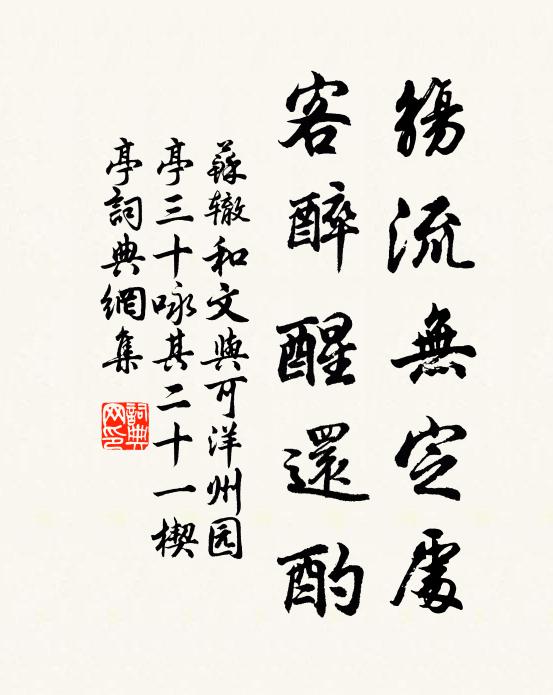 觴流無定處
客醉醒還酌
蘇辙和文與可洋州园
亭三十咏其二十一楔
亭詞典網集
詞典
网印